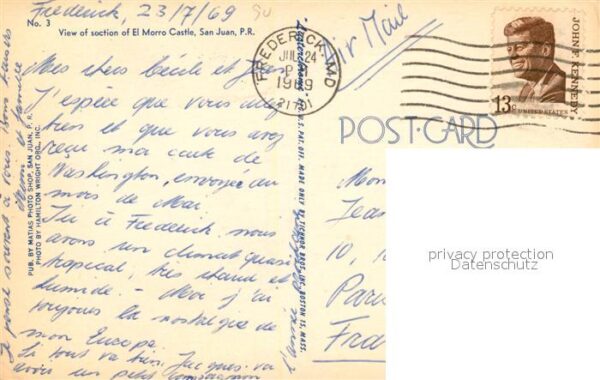 Frederick, 23/7/69
No. 3
View of section of El Morro Castle, San Juan, P.R.
Mes chers Cécile et Jean
J'espère que vous allez
bien et que vous avez
reçu ma carte de
Washington, envoyée au
mois de Mai.
Ici à Frederick nous
avons un climat quasi
tropical, très chaud et
humide. - Moi j'ai
toujours la nostalgie de
mon Europe.
Si tout va bien, Jacques va
avoir un petit
l'année
Je pense souvent à vous. Bons baisers
PUB. BY MATIAS PHOTO SHOP, SAN JUAN, P. R.
PHOTO BY HAMILTON WRIGHT ORG., INC.
REG. U. S. PAT. OFF. MADE ONLY BY TICHNOR BROS., INC. BOSTON 15, MASS.
FREDERICK, MD
JUL 24
PM
1969
21701
Air Mail
JOHN F. KENNEDY
13c UNITED STATES
POST CARD
Mon
Jea
10,
Paris
Fra
privacy protection
Datenschutz